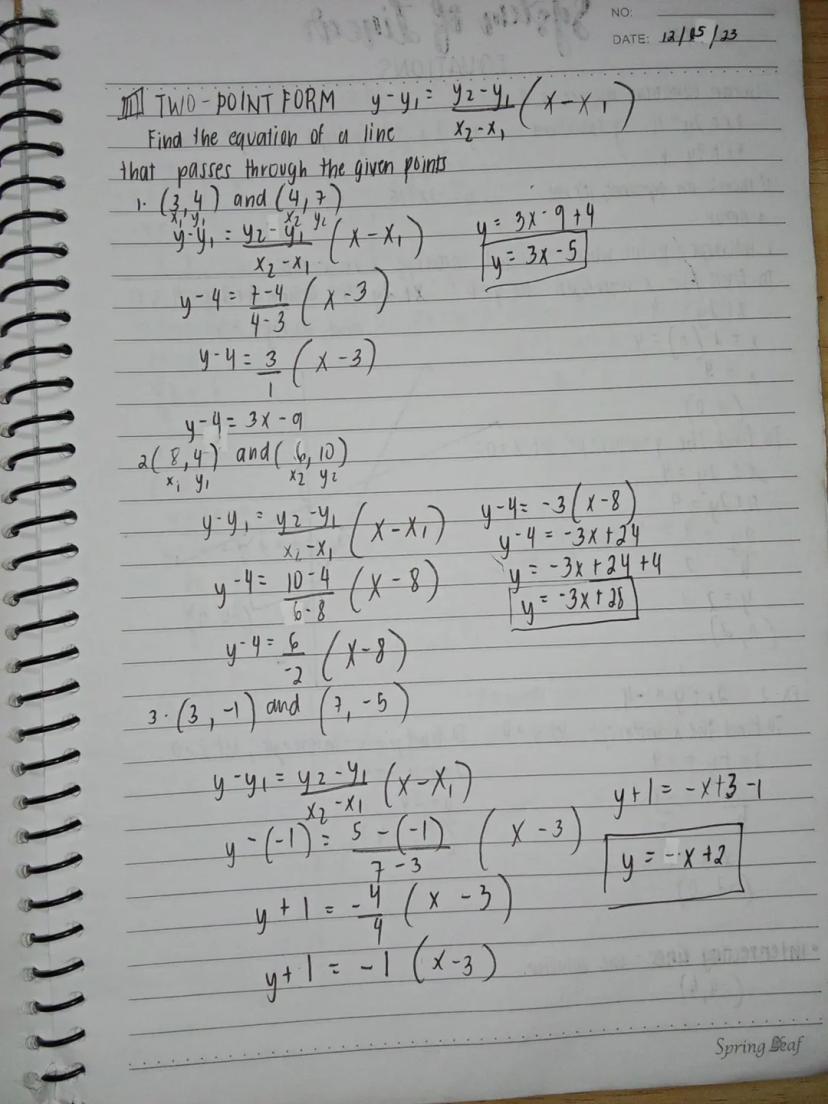 NO:
DATE: 12/05/23
III TWO-POINT FORM y-y₁ = y₂-y₁/x₂-x₁ (x-x₁)
Find the equation of a line
that passes through the given points
1. (3,4) and (4,7)
x₁ y₁ x₂ y₂
y-y₁ = y₂-y₁/x₂-x₁ (x-x₁)
y-4 = 7-4/4-3 (x-3)
y-4 = 3/1 (x-3)
y-4 = 3x-9
y = 3x-9+4
y = 3x-5
2(8,4) and (6,10)
x₁ y₁ x₂ y₂
y-y₁ = y₂-y₁/x₂-x₁ (x-x₁)
y-4 = 10-4/6-8 (x-8)
y-4 = 6/-2 (x-8)
y-4 = -3(x-8)
y-4 = -3x+24
y = -3x+24+4
y = -3x+28
3. (3,-1) and (7,-5)
y-y₁ = y₂-y₁/x₂-x₁ (x-x₁)
y-(-1) = 5-(-1)/7-3 (x-3)
y+1 = -4/4 (x-3)
y+1 = -1 (x-3)
y+1 = -x+3-1
y = -x+2
Spring Leaf